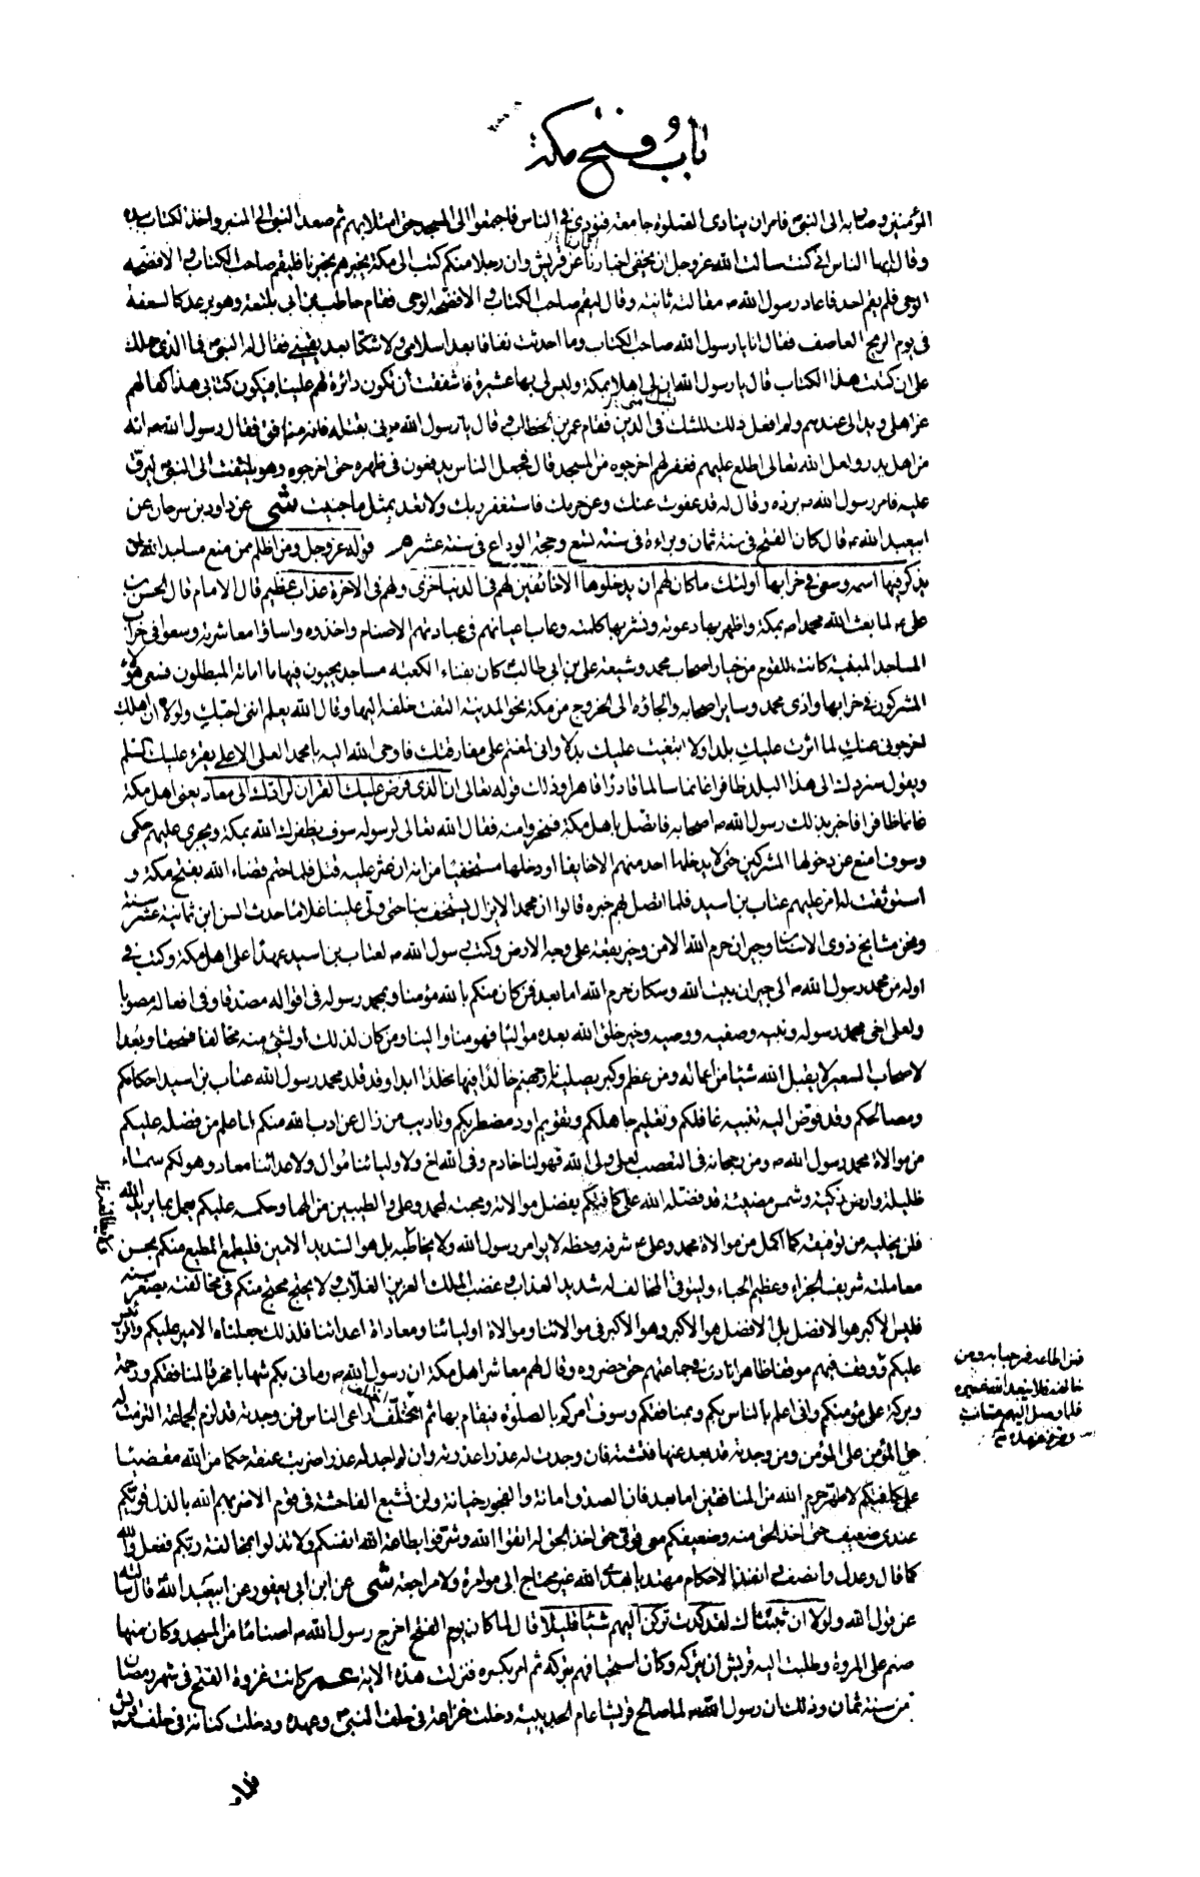 باب فتح مكة
المؤمنين وصار به الى النبي ص فامر ان ينادى الصلوة جامعة فنودي في الناس فاجتمعوا الى المسجد حتى امتلا بهم ثم صعد النبي الى المنبر واخذ الكتاب بيده
وقال ايها الناس اني كنت سالت الله عز وجل ان يخفى اخبارنا عن قريش وان رجلا منكم كتب الى مكة يخبرهم بخبرنا فليقم صاحب الكتاب والا فضحه
الوحى فلم يقم احد فاعاد رسول الله ص مقالته ثانية وقال ليقم صاحب الكتاب والا فضحه الوحى فقام حاطب بن ابى بلتعة وهو يرعد كالسعفة
فى يوم الريح العاصف فقال انا يا رسول الله صاحب الكتاب وما احدثت نفاقا بعد اسلامى ولا شكا بعد يقينى فقال له النبي ص فما الذى حملك
على ان كتبت هذا الكتاب قال يا رسول الله ان لى اهلا بمكة وليس لى بها عشيرة فاشفقت ان تكون دائرة لهم علينا فيكون كتابى هذا كفا لهم
عن اهلى ويدا لى عندهم ولم افعل ذلك للشك فى الدين فقام عمر بن الخطاب وقال يا رسول الله مرنى بقتله فانه منافق فقال رسول الله ص انه
من اهل بدر ولعل الله تعالى اطلع عليهم فغفر لهم اخرجوه من المسجد قال فجعل الناس يدفعون فى ظهره حتى اخرجوه وهو يلتفت الى النبي ليرق
عليه فامر رسول الله ص برده وقال له قد عفوت عنك وعن جرمك فاستغفر ربك ولا تعد بمثل ما جنيت شى عن داود بن سرحان عن
ابيعبد الله ع قال كان الفتح فى سنة ثمان وبراءة فى سنة تسع وحجة الوداع فى سنة عشر م قوله عز وجل ومن اظلم ممن منع مساجد الله ان
يذكر فيها اسمه وسعى فى خرابها اولئك ما كان لهم ان يدخلوها الا خائفين لهم فى الدنيا خزى ولهم فى الاخرة عذاب عظيم قال الامام قال الحسن بن
على ع لما بعث الله محمدا ص بمكة واظهر بها دعوته ونشر بها كلمته وعاب اعيانهم فى عبادتهم الاصنام واخذوه واساؤا معاشرته وسعوا فى خراب
المساجد المبنية كانت للقوم من خيار اصحاب محمد وشيعة على بن ابى طالب كان بفناء الكعبة مساجد يحيون فيها ما اماته المبطلون فسعى هؤلاء
المشركون فى خرابها واذى محمد وساير اصحابه والجاؤه الى الخروج من مكة نحو المدينة التفت خلفه اليها وقال الله يعلم اننى احبك ولولا ان اهلك
اخرجونى عنك لما اثرت عليك بلدا ولا ابتغيت عليك بدلا وانى لمغتم على مفارقتك فاوحى الله اليه يا محمد العلى الاعلى يقرء عليك السلم
ويقول سنردك الى هذا البلد ظافرا غانما سالما قادرا قاهرا وذلك قوله تعالى ان الذى فرض عليك القران لرادك الى معاد يعنى اهل مكة
غانما ظافرا فاخبر بذلك رسول الله ص اصحابه فاتصل باهل مكة فسخروا منه فقال الله تعالى لرسوله سوف يظفرك الله بمكة ويجرى عليهم حكمى
وسوف امنع عن دخولها المشركين حتى لا يدخلها احد منهم الا خايفا او دخلها مستخفيا من انه ان عثر عليه قتل فلما حتم قضاء الله بفتح مكة و
استوثقت له امر عليهم عتاب بن اسيد فلما اتصل بهم خبره قالوا ان محمدا لا يزال يستخف بنا حتى ولى علينا غلاما حدث السن ابن ثمانية عشر سنة
ونحن مشايخ ذوى الاسنان وجيران حرم الله الامن وخير بقعة على وجه الارض وكتب رسول الله ص لعتاب بن اسيد عهدا على اهل مكة وكتب فى
اوله من محمد رسول الله ص الى جيران بيت الله وسكان حرم الله اما بعد فمن كان منكم بالله مؤمنا وبمحمد رسوله فى اقواله مصدقا وفى افعاله مصوبا
ولعلى اخى محمد رسوله ونبيه وصفيه ووصيه وخير خلق الله بعده مواليا فهو منا والينا ومن كان لذلك او لشئ منه مخالفا فسحقا وبعدا
لاصحاب السعير لا يقبل الله شيئا من اعماله ومن عظم وكبر يصليه نار جهنم خالدا فيها مخلدا ابدا وقد قلد محمد رسول الله عتاب بن اسيد احكامكم
ومصالحكم وقد فوض اليه تنبيه غافلكم وتعليم جاهلكم وتقويم اود مضطربكم وتاديب من زال عن ادب الله منكم لما علم من فضله عليكم
من موالاة محمد رسول الله ص ومن رجحانه فى التعصب لعلى ولى الله فهو لنا خادم وفى الله اخ ولاوليائنا موال ولاعدائنا معاد وهو لكم سماء
ظليلة وارض زكية وشمس مضيئة قد فضله الله على كافتكم بفضل موالاته ومحبته لمحمد وعلى والطيبين من الهما وحكمه عليكم يعمل بما يريد الله
فلن يخليه من توفيقه كما اكمل من موالاة محمد وعلى ع شرفه وحظه لا يوامر رسول الله ولا يخاطبه بل هو السديد الامين فليطمع المطيع منكم بحسن
معاملته شريف الجزاء وعظيم الحباء وليتوق المخالف له شديد العذاب وغضب الملك العزيز الغلاب ولا يحتج محتج منكم فى مخالفته بصغر سنه
فليس الاكبر هو الافضل بل الافضل هو الاكبر وهو الاكبر فى موالاتنا وموالاة اوليائنا ومعاداة اعدائنا فلذلك جعلناه الامير عليكم والرئيس
عليكم ووقف فيهم موقفا ظاهرا نادى فى جماعتهم حتى حضروه وقال لهم معاشر اهل مكة ان رسول الله ص رمانى بكم شهابا محرقا لمنافقكم ورحمة
وبركة على مؤمنكم وانى اعلم الناس بكم وبمنافقكم وسوف امركم بالصلوة فيقام بها ثم اتخلف اراعى الناس فمن وجدته قد لزم الجماعة التزمت له
حق المؤمن على المؤمن ومن وجدته قد بعد عنها فتشته فان وجدت له عذرا عذرته وان لم اجد له عذرا ضربت عنقه حكما من الله مقضيا
على كافتكم لاطهر حرم الله من المنافقين اما بعد فان الصدق امانة والفجور خيانة ولن تشيع الفاحشة فى قوم الا ضربهم الله بالذل قويكم
عندى ضعيف حتى اخذ الحق منه وضعيفكم عندى قوى حتى اخذ الحق له اتقوا الله وشرفوا بطاعة الله انفسكم ولا تذلوا بمخالفة ربكم ففعل والله
كما قال وعدل وانصف وانفذ الاحكام مهتديا بهدى الله غير محتاج الى موامرة ولا مراجعة شى عن ابن ابى يعفور عن ابيعبد الله قال سالته
عن قول الله ولولا ان ثبتناك لقد كدت تركن اليهم شيئا قليلا قال لما كان يوم الفتح اخرج رسول الله ص اصناما من المسجد وكان منها
صنم على المروة وطلبت اليه قريش ان يتركه وكان استحيا فهم بتركه ثم امر بكسره فنزلت هذه الاية عم كانت غزوة الفتح فى شهر رمضان
من سنة ثمان وذلك ان رسول الله ص لما صالح قريشا عام الحديبية دخلت خزاعة فى حلف النبي ص وعهده ودخلت كنانة فى حلف قريش
فمن اطاعه فمرحبا به ومن
خالفه فلا يبعد الله غيره
فلما وصل اليهم عتاب
وقرء عهده